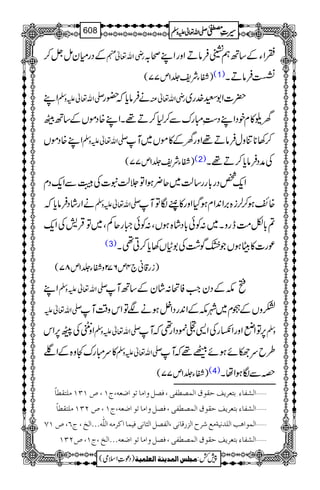 سیرتِ مصطفیٰ صلی اللہ تعالیٰ علیہ وسلم 608
فقراء کے ساتھ ہم نشینی فرماتے اور اپنے صحابہ رضی اللہ تعالیٰ عنہم کے درمیان مل جل کر
نشست فرماتے۔(1) (شفاء شریف جلد۱ ص۷۷)
حضرت ابو سعید خدری رضی اللہ تعالیٰ عنہ نے فرمایا کہ حضور صلی اللہ تعالیٰ علیہ وسلم اپنے
گھریلو کام خود اپنے دست مبارک سے کر لیا کرتے تھے۔ اپنے خادموں کے ساتھ بیٹھ
کر کھانا تناول فرماتے تھے اور گھر کے کاموں میں آپ صلی اللہ تعالیٰ علیہ وسلم اپنے خادموں
کی مدد فرمایا کرتے تھے۔(2) (شفاء شریف جلد۱ ص۷۷)
ایک شخص دربار رسالت میں حاضر ہوا تو جلالت نبوت کی ہیبت سے ایک دم
خائف ہو کر لرزہ براندام ہو گیا اور کانپنے لگا تو آپ صلی اللہ تعالیٰ علیہ وسلم نے ارشاد فرمایا کہ
تم بالکل مت ڈرو۔ میں نہ کوئی بادشاہ ہوں، نہ کوئی جبار حاکم، میں تو قریش کی ایک
عورت کا بیٹا ہوں جو خشک گوشت کی بوٹیاں کھایا کرتی تھی۔(3)
(زرقانی ج۴ ص۲۷۶ و شفاء جلد۱ ص۷۸)
فتح مکہ کے دن جب فاتحانہ شان کے ساتھ آپ صلی اللہ تعالیٰ علیہ وسلم اپنے
لشکروں کے ہجوم میں شہر مکہ کے اندر داخل ہونے لگے تو اس وقت آپ صلی اللہ تعالیٰ علیہ
وسلم پر تواضع اور انکسار کی ایسی تجلی نمودار تھی کہ آپ صلی اللہ تعالیٰ علیہ وسلم اونٹنی کی پیٹھ پر اس
طرح سر جھکائے ہوئے بیٹھے تھے کہ آپ صلی اللہ تعالیٰ علیہ وسلم کا سر مبارک کجاوہ کے اگلے
حصہ سے لگا ہوا تھا۔(4) (شفاء جلد۱ ص۷۷)
……الشفاء بتعریف حقوق المصطفی ، فصل واما تواضعہ،ج۱ ، ص ۱۳۱ ملتقطاً
……الشفاء بتعریف حقوق المصطفی ، فصل واما تواضعہ،ج۱ ، ص ۱۳۲ ملتقطاً
……المواہب اللدنیۃ مع شرح الزرقانی ،الفصل الثانی فیما اکرمہ اللّٰہ...الخ ، ج۶، ص ۷۱
……الشفاء بتعریف حقوق المصطفی ، فصل واما تواضعہ...الخ ،ج۱، ص۱۳۲
پیش کش: مجلس المدینۃ العلمیۃ (دعوتِ اسلامی)